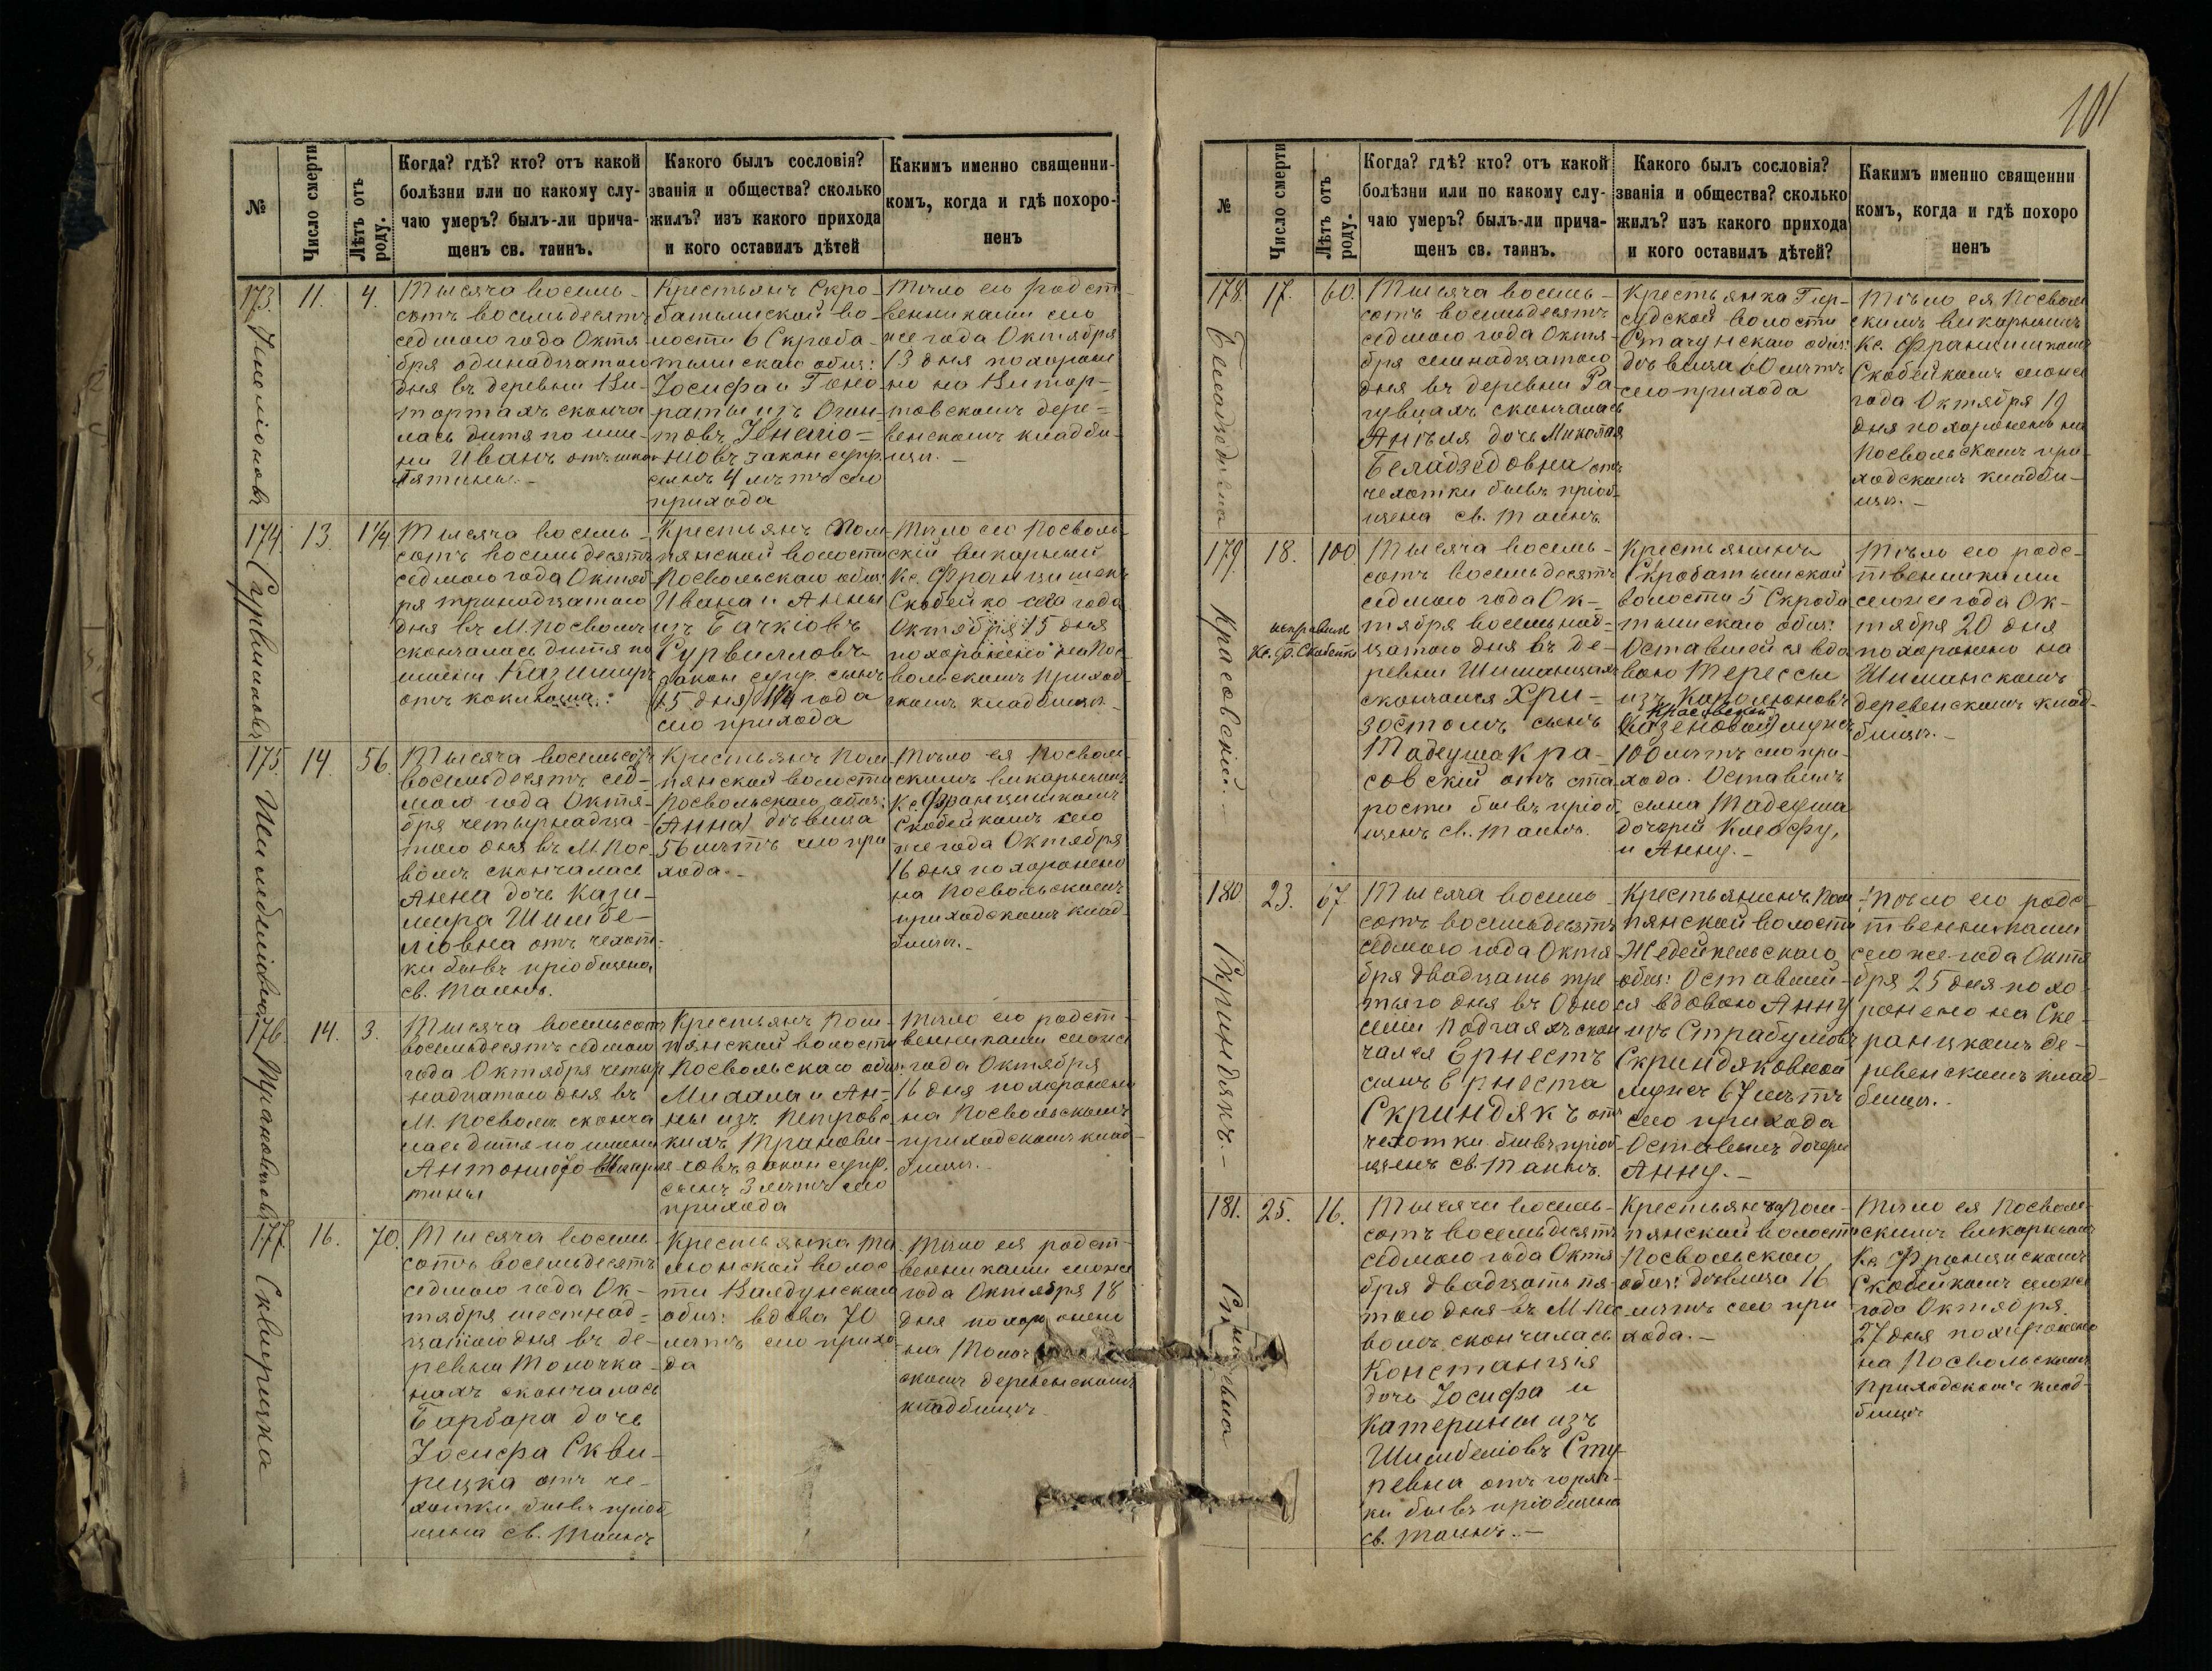 101
№
Число смерти
Лѣтъ отъ роду.
Когда? гдѣ? кто? отъ какой
болѣзни или по какому слу-
чаю умеръ? былъ-ли прича-
щенъ св. таинъ.
Какого былъ сословія?
званія и общества? сколько
жилъ? изъ какого прихода
и кого оставилъ дѣтей
Каким именно священни-
комъ, когда и гдѣ похоро-
ненъ
173.
11.
4.
Тысяча восемь-
сотъ восемьдесятъ
седмого года Октя-
бря одинадцатого
дня въ деревни Ви-
тортахъ сконча
лась дитя по име-
ни Иванъ
Крестьянъ Скро-
батышской во-
лости 6 Скроба-
тышскаго общ:
Іосифа и Гоно-
раты изъ
закон супр.
сынъ 4 лѣтъ сего
прихода
Тѣло его родст-
венниками сего
же года Октября
13 дня похороне
но на Витор-
товскомъ дере-
венскомъ кладби-
щи.-
174
13.
1¼
Тысяча восемь-
сотъ восемьдесятъ
седмого года Октяб
ря тринадцатого
дня въ М. Посволѣ
скончалась дитя по
имени Казимиръ
отъ коклюша.
Крестьянъ Пом-
пянской волости
Посвольскаго общ:
Ивана и Анны
изъ Бачкіовъ
Сурвилловъ
закон супр. сынъ
15 дня) 1¼ года
сего прихода
Тѣло его Посволь-
скій викарный
Кс. Францишекъ
Скобейко сего года
Октября 15 дня
похоронено на Пос-
вольскомъ приход
скомъ кладбищи.
175.
14.
56.
Тысяча восемьсотъ
восемьдесятъ сед-
мого года Октя-
бря четырнадца-
того дня въ М. Пос-
волѣ скончалась
Анна дочь Кази-
мира Шимбе-
ліовна отъ чехот-
ки бывъ пріобщена
св. Таинъ.
Крестьянъ Пом
пянской волости
Посвольскаго общ:
Анна) дѣвица
56 лѣтъ сего при
хода.-
Тѣло ея Посволь
скимъ викарнымъ
Кс. Францишкомъ
Скобейкомъ сего
же года Октября
16 дня похоронено
на Посвольскомъ
приходскомъ клад
бищи.-
176
14.
3.
Тысяча восемьсотъ
восемьдесятъ седмого
года Октября четыр
надцатого дня въ
М. Посволѣ сконча
лась дитя по имени
Крестьянъ Пом-
пянской волости
Посвольскаго общ:
Михала и Ан-
ны изъ Петровс
кихъ Транови-
човъ закон супр.
сынъ 3 лѣтъ сего
прихода
Тѣло его родст-
венниками сегоже
года Октября
16 дня похоронено
на Посвольскомъ
приходскомъ клад-
бищи.-
177
16.
70.
Скверицка
Тысяча восемь
сотъ восемьдесятъ
седмого года Ок-
тября шестнад-
цатого дня въ де-
ревни Толочка-
няхъ скончалась
Барбара дочь
Іосифа Скви-
рецка отъ че-
хотки бывъ пріоб
щена св. Таинъ
Крестьянка
волос
ти
общ: вдова 70
лѣтъ сего прихо
да
Тѣло ея родст-
венниками сегоже
года Октября 18
дня похоронено
на
скомъ деревенскомъ
кладбищи
№
Число смерти
Лѣтъ отъ роду.
Когда? гдѣ? кто? отъ какой
болѣзни или по какому слу-
чаю умеръ? былъ-ли прича-
щенъ св. таинъ.
Какого былъ сословія?
званія и общества? сколько
жилъ? изъ какого прихода
и кого оставилъ дѣтей?
Каким именно священни
комъ, когда и гдѣ похоро
ненъ
178.
17.
60.
Тысяча восемь-
сотъ восемьдесятъ
седмого года Октя-
бря семнадцатого
дня въ деревни
скончалась
дочь Миколая
Беладзедовна отъ
чехотки бывъ пріоб-
щена св. Таинъ.
Крестьянка
волости
общ:
дѣвица 60 лѣтъ
сего прихода
Тѣло ея Посволь
скимъ викарнымъ
Кс. Францишкомъ
Скобейкомъ сегоже
года Октября 19
дня похоронено на
Посвольскомъ при-
ходскомъ кладби-
щи.-
179.
18.
100
Красовскій.-
исправилъ
Кс. Ф. Скобейко
Тысяча восемь-
сотъ восемьдесятъ
седмого года Ок-
тября восемьнад-
цатого дня въ де-
ревни
скончался Хри-
зостомъ сынъ
Тадеуша Кра-
совскій отъ ста-
рости бывъ пріоб-
щенъ св. Таинъ.
Крестьянинъ
Скробатышской
волости 5 Скроба
тышскаго общ:
Оставшейся вдо
вою Терессы
изъ
Красовской
мужъ
100 лѣтъ сего при-
хода. Оставилъ
сына Тадеуша
дочерей Клеофу,
и Анну.-
Тѣло его родс-
твенниками
сегоже года Ок-
тября 20 дня
похоронено на
Шиманскомъ
деревенскомъ клад-
бищи.-
180.
23.
67.
Скриндякъ.-
Тысяча восемь-
сотъ восемьдесятъ
седмого года Октя-
бря двадцать тре
тьего дня въ
скон
чался Ернестъ
сынъ Ернеста
Скриндякъ отъ
чехотки бывъ пріоб
щенъ св. Таинъ.
Крестьянинъ Пом
пянской волости
Жедейкельскаго
общ: Оставшей-
ся вдовою Анну
изъ
Скриндяковной
мужъ 67 лѣтъ
сего прихода
Оставилъ дочери
Анну.-
Тѣло его родс-
твенниками
сего же года Октя
бря 25 дня похо-
ронено на Ске-
ранцкомъ де-
ревенскомъ клад-
бищи.
181.
25.
16.
Тысяча восемь-
сотъ восемьдесятъ
седмого года Октя-
бря двадцать пя-
того дня въ М. Пос
волѣ скончалась
Констанція
дочь Іосифа и
Катерины изъ
Шимбеліовъ Сту-
певна отъ горяч-
ки бывъ пріобщена
св. Таинъ.-
Крестьянка Пом-
пянской волости
Посвольскаго
общ: дѣвица 16
лѣтъ сего при
хода.-
Тѣло ея Посволь-
скимъ викарнымъ
Кс Францискомъ
Скобейкомъ сегоже
года Октября
27 дня похоронено
на Посвольскомъ
Приходскомъ клад-
бищи